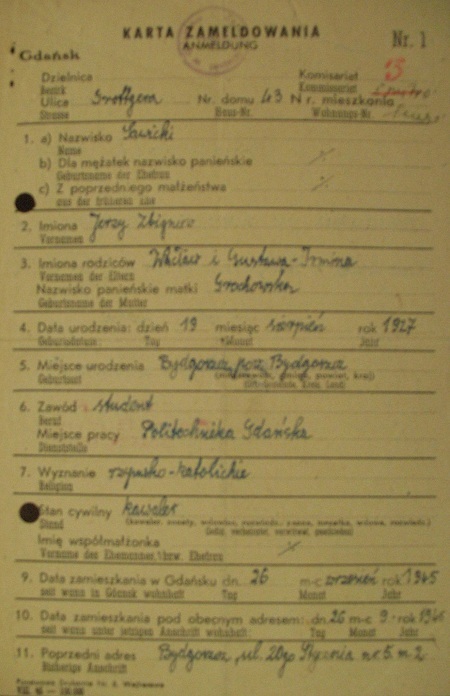 KARTA ZAMELDOWANIA
ANMELDUNG
Nr. 1
Gdańsk
Dzielnica Komisariat 3
Bezirk Kommissariat
Ulica Grottgera Nr. domu 43 Nr. mieszkania
Strasse Haus-Nr. Wohnungs-Nr.
1. a) Nazwisko Sawicki
Name
b) Dla mężatek nazwisko panieńskie
Geburtsname der Ehefrau
c) Z poprzedniego małżeństwa
aus der früheren Ehe
2. Imiona Jerzy Zbigniew
Vornamen
3. Imiona rodziców Wacław i Gustawa-Irmina
Vornamen der Eltern
Nazwisko panieńskie matki Grochowska
Geburtsname der Mutter
4. Data urodzenia: dzień 19 miesiąc sierpień rok 1927
Geburtsdatum: Tag Monat Jahr
5. Miejsce urodzenia Bydgoszcz, pow. Bydgoszcz
Geburtsort
6. Zawód student
Beruf
Miejsce pracy Politechnika Gdańska
Dienststelle
7. Wyznanie rzymsko-katolickie
Religion
Stan cywilny kawaler
Stand
Imię współmałżonka
Vorname des Ehemannes bzw. Ehefrau
9. Data zamieszkania w Gdańsku dn. 26 m-c wrzesień rok 1945
seit wann in Gdańsk wohnhaft Tag Monat Jahr
10. Data zamieszkania pod obecnym adresem: dn. 26 m-c 9. rok 1945
seit wann unter jetzigen Anschrift wohnhaft Tag Monat Jahr
11. Poprzedni adres Bydgoszcz, ul. 20go Stycznia nr. 5 m. 2
Bisherige Anschrift